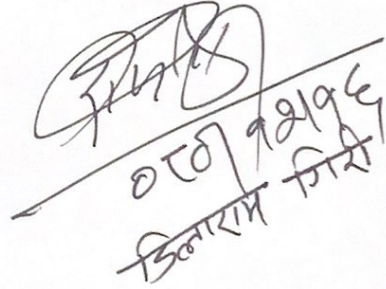 ०८०।१२।१६
डिलाराम गिरी